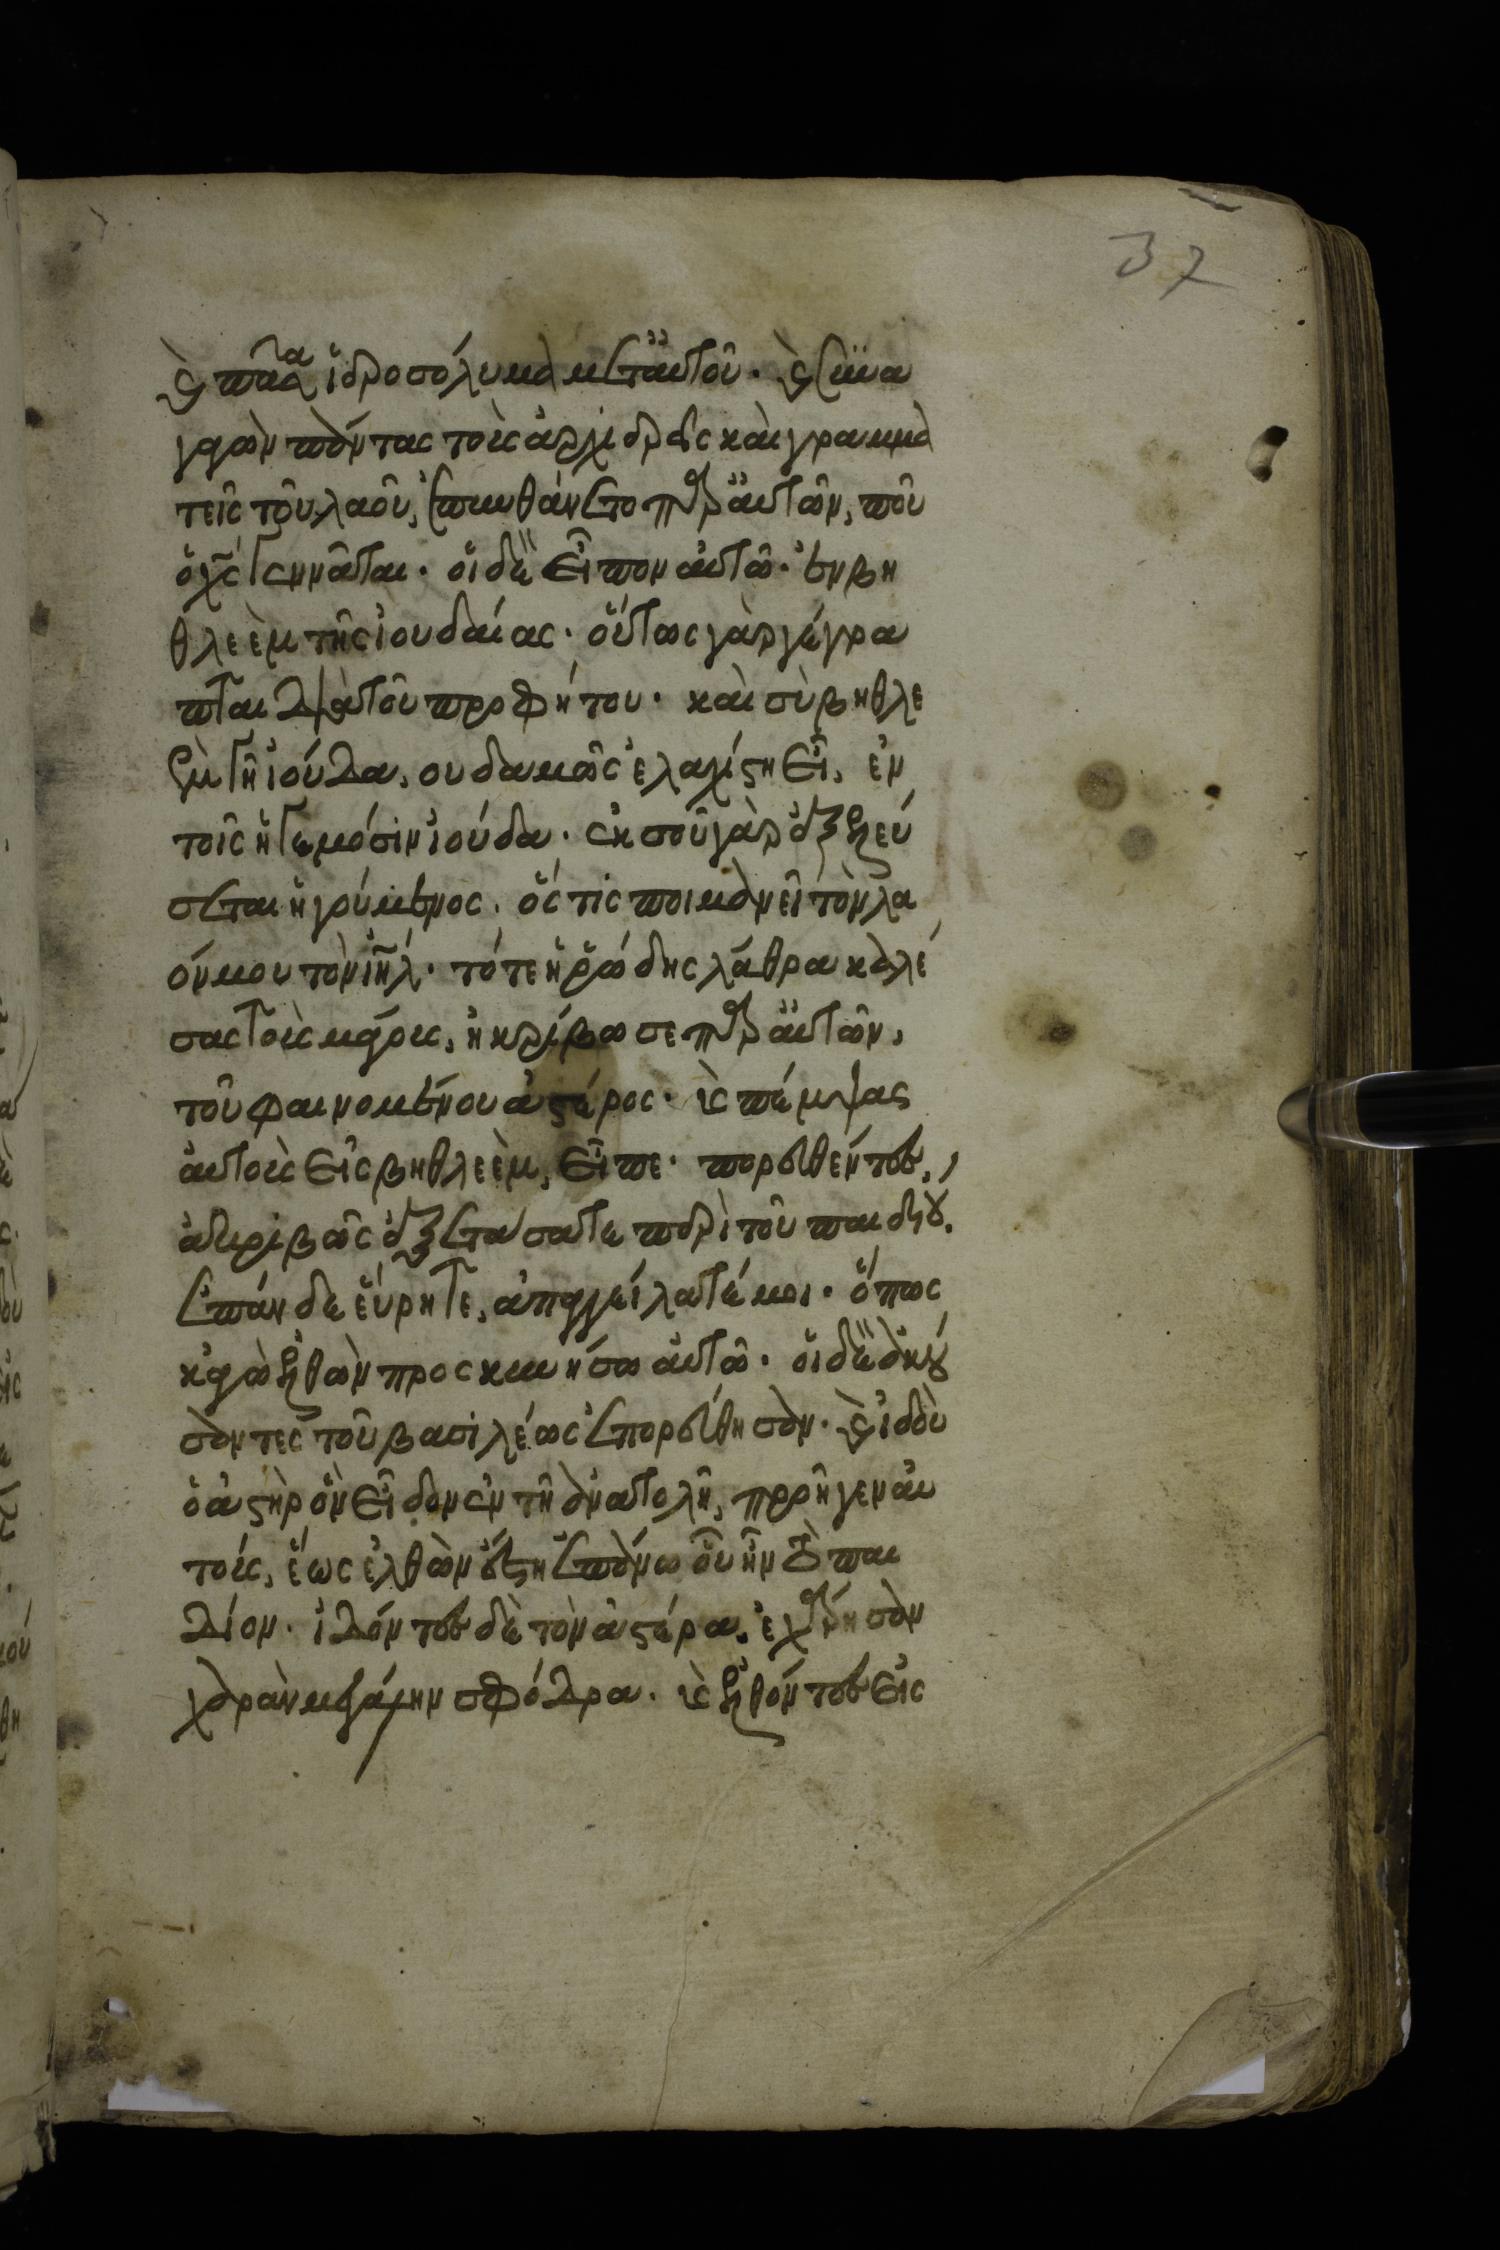 37
καὶ πᾶσα ἱεροσόλυμα μετ' αὐτοῦ. καὶ συνα
γαγὼν πάντας τοὺς ἀρχιερεῖς καὶ γραμμα
τεῖς τοῦ λαοῦ, ἐπυνθάνετο παρ' αὐτῶν, ποῦ
ὁ χ̅ς̅ γεννᾶται. οἱ δὲ εἶπον αὐτῶ. ἐν βη
θλεὲμ τῆς ἰουδαίας. οὕτως γὰρ γέγρα
πται διὰ τοῦ προφήτου. καὶ σὺ βηθλε
ὲμ γῆ ἰούδα, ουδαμῶς ἐλαχίστη εἶ, ἐν
τοῖς ἡγεμόσιν ἰούδα. ἐκ σοῦ γὰρ ἐξελεύ
σεται ἡγούμενος. ὅς τις ποιμανεῖ τὸν λα
όν μου τὸν ἰη̅λ̅. τότε ἡρώδης λάθρα καλέ
σας τοὺς μάγους, ἠκρίβωσε παρ' αὐτῶν,
τοῦ φαινομένου ἀστέρος. καὶ πέμψας
αὐτοὺς εἰς βηθλεὲμ, εἶπε. πορευθέντες,
ἀκριβῶς ἐξετάσατε περὶ τοῦ παιδίου.
ἐπὰν δὲ εὕρητε, ἀπαγγείλατέ μοι. ὅπως
κἀγὼ ἐλθὼν προσκυνήσω αὐτῶ. οἱ δὲ ἀκού
σαντες τοῦ βασιλέως ἐπορεύθησαν. καὶ ἰδοὺ
ὁ ἀστὴρ ὃν εἶδον ἐν τῆ ἀνατολῆ, προῆγεν αὐ
τούς, ἕως ἐλθὼν ἔστη ἐπάνω οὗ ἦν τὸ παι
δίον. ἰδόντες δὲ τὸν ἀστέρα, ἐχάρησαν
χαρὰν μεγάλην σφόδρα. καὶ ἐλθόντες εἰς